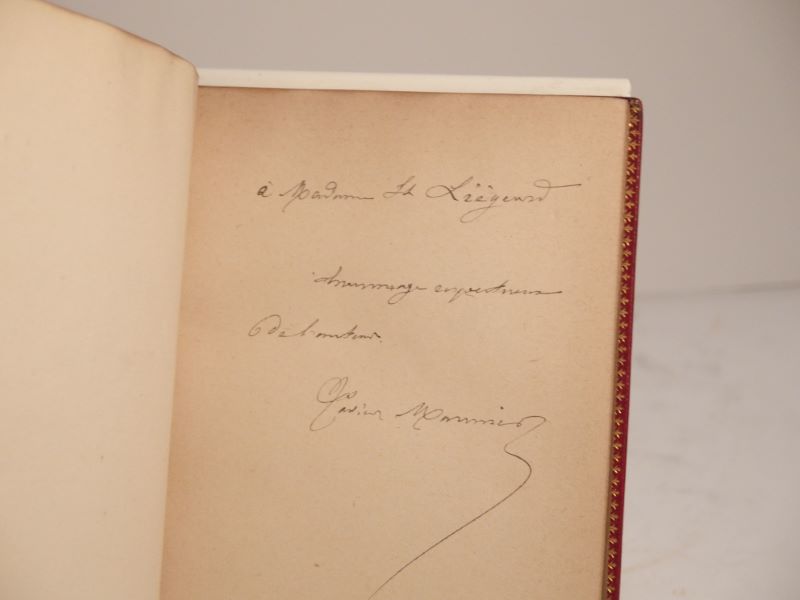 à Madame St Liégeard
hommage respectueux
de l'auteur.
Xavier Marmier